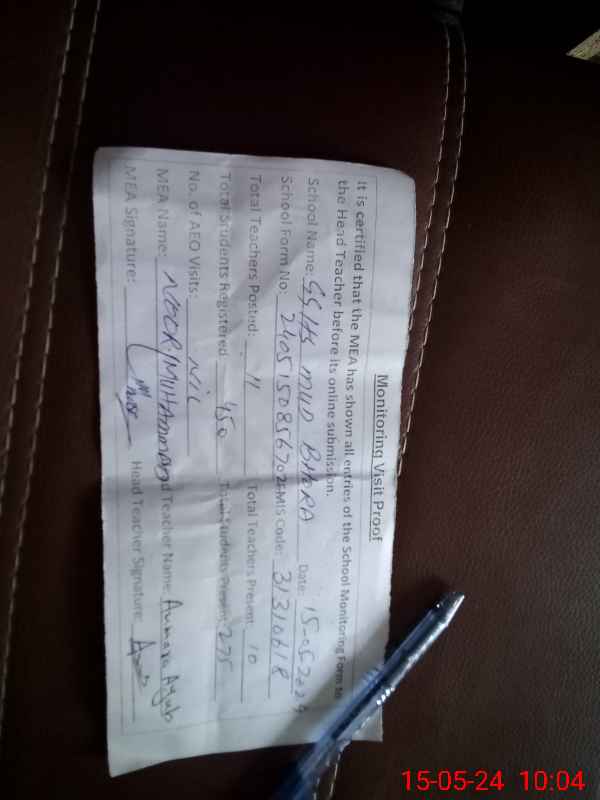 Monitoring Visit Proof
It is certified that the MEA has shown all entries of the School Monitoring Form to
the Head Teacher before its online submission.
School Name: GGHS MUD BHERA Date: 15-05-2024
School Form No: 240515085670 EMIS Code: 31310618
Total Teachers Posted: 11 Total Teachers Present: 10
Total Students Registered 450 Total Students Present: 275
No. of AEO Visits: NIL
MEA Name: NOOR MUHAMMAD Head Teacher Name: Ayub
MEA Signature: Head Teacher Signature:
15-05-24 10:04